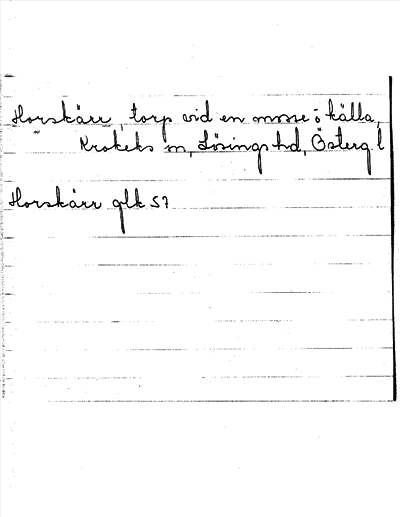 Horskärr, torp vid en mosse o källa,
Krokeks sn, Lösings hd, Österg l
Horskärr glk 57